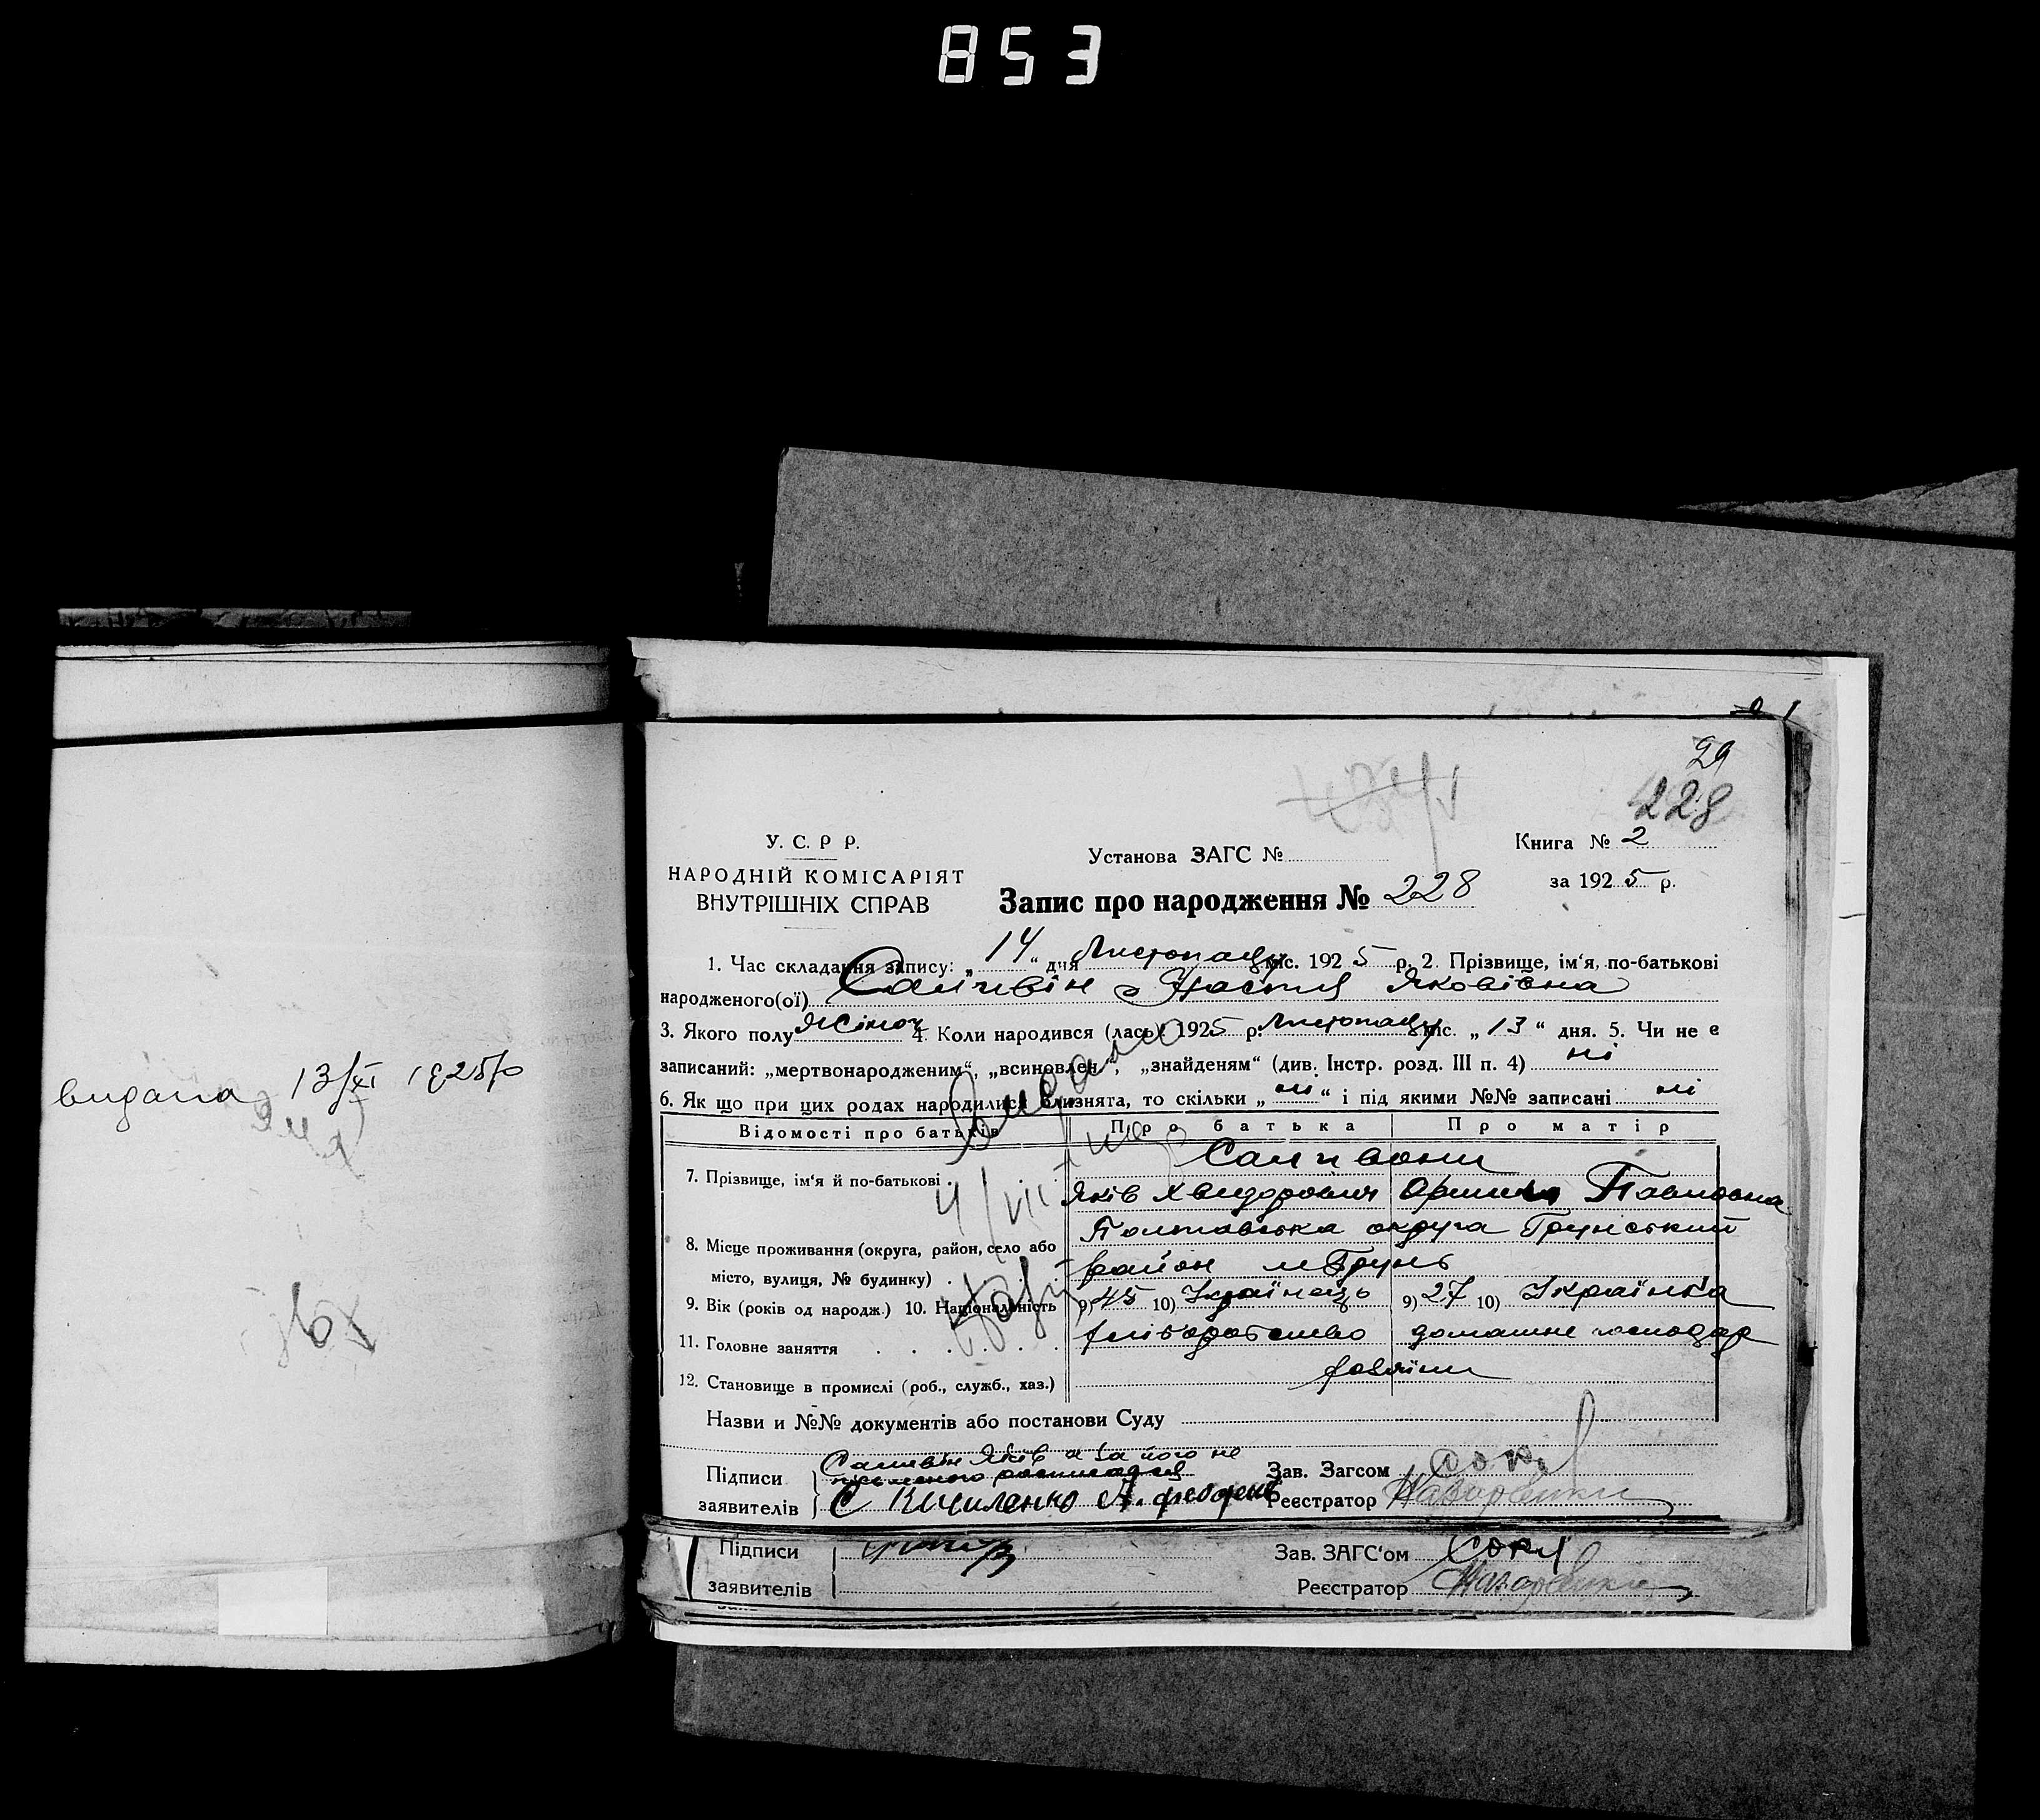 853
29
228
У. С. Р Р.
НАРОДНІЙ КОМІСАРІЯТ
ВНУТРІШНІХ СПРАВ
Установа ЗАГС №
Книга № 2
за 1925 р.
Запис про народження № 228
1. Час складання запису: „14“ дня Листопаду міс. 1925 р. 2. Прізвище, ім'я, по-батькові
народженого(ої) Сампвін Настя Яковівна
3. Якого полу Жіноч 4. Коли народився (лась) 1925 р. Листопаду міс. „13“ дня. 5. Чи не є
записаний: „мертвонародженим“, „всиновлен“, „знайденям“ (див. Інстр. розд. III п. 4) ні
6. Як що при цих родах народилися близнята, то скільки „ні“ і під якими №№ записані ні
Відомості про батьків Про батька Про матір
7. Прізвище, ім'я й по-батькові
Яків Хведорович Павловна
8. Місце проживання (округа, район, село або
місто, вулиця, № будинку)
Полтавська округа Грунський
район м Грунь
9. Вік (років од народж.) 10. Національність 9) 45 10) Українець 9) 27 10) Українка
11. Головне заняття хліборобство домашне господар
12. Становище в промислі (роб., служб., хаз.) хазяїни
Назви и №№ документів або постанови Суду
Яків а за його не
письменого росписався
Підписи
заявителів
С Кичиленко
Зав. Загсом
Реєстратор
видана 13/XI 1925 р
Підписи
заявителів
Зав. ЗАГС'ом
Реєстратор